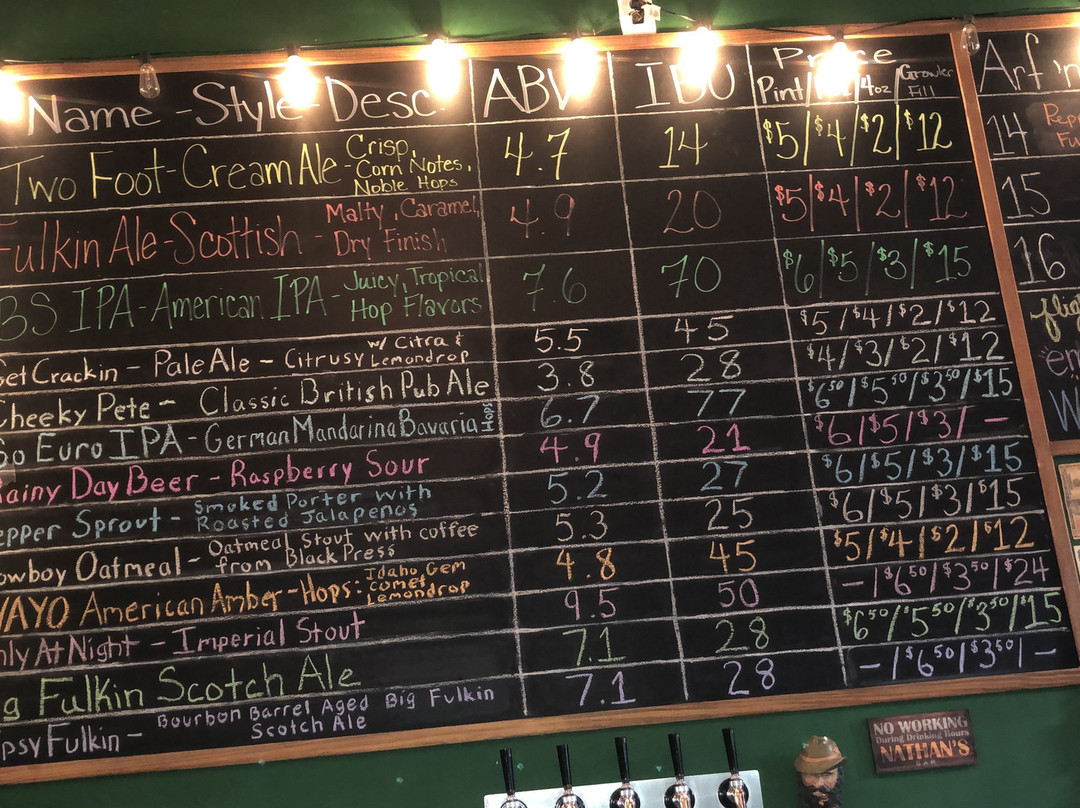 Name - Style - Desc. ABV IBU Price
Pint / 4oz / Growler Fill
Two Foot - Cream Ale - Crisp, Corn Notes, Noble Hops 4.7 14 $5/$4/$2/$12
Fulkin Ale - Scottish - Malty, Caramel, Dry Finish 4.9 20 $5/$4/$2/$12
BS IPA - American IPA - Juicy, Tropical Hop Flavors 7.6 70 $6/$5/$3/$15
Get Crackin - Pale Ale - Citrusy w/ Citra & Lemondrop 5.5 45 $5/$4/$2/$12
Cheeky Pete - Classic British Pub Ale 3.8 28 $4/$3/$2/$12
Euro IPA - German Mandarina Bavaria Hops 6.7 77 $6⁵⁰/$5⁵⁰/$3⁵⁰/$15
Rainy Day Beer - Raspberry Sour 4.9 21 $6/$5/$3/-
epper Sprout - Smoked Porter with Roasted Jalapenos 5.2 27 $6/$5/$3/$15
owboy Oatmeal - Oatmeal Stout with coffee from Black Press 5.3 25 $6/$5/$3/$15
WAYO American Amber - Hops: Idaho Gem Comet Lemondrop 4.8 45 $5/$4/$2/$12
nly At Night - Imperial Stout 9.5 50 -/$6⁵⁰/$3⁵⁰/$24
g Fulkin Scotch Ale 7.1 28 $6⁵⁰/$5⁵⁰/$3⁵⁰/$15
ipsy Fulkin - Bourbon Barrel Aged Big Fulkin Scotch Ale 7.1 28 -/$6⁵⁰/$3⁵⁰/-
Arf 'n
14
15
16
NO WORKING
During Drinking Hours
NATHAN'S
BAR